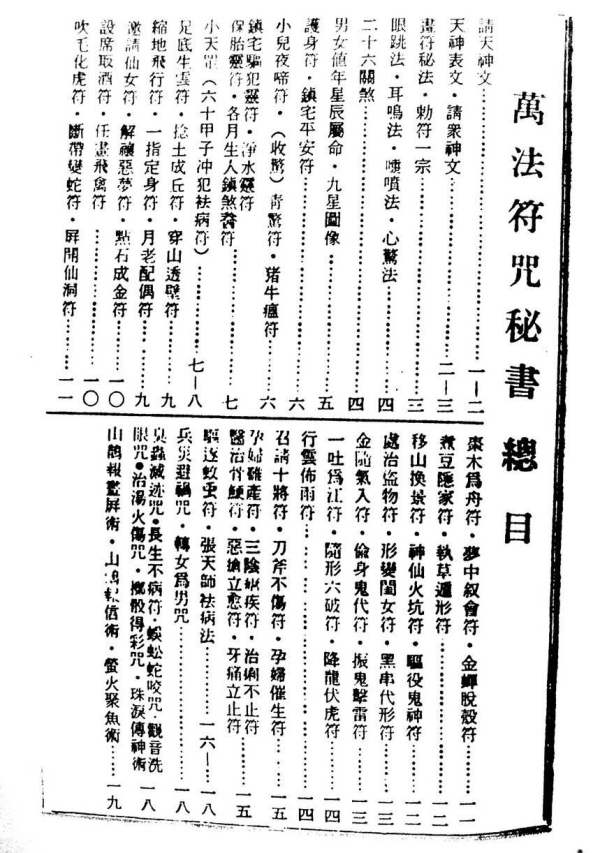 萬法符咒秘書總目
請天神文………一—二
天神表文·請衆神文………二—三
畫符秘法·勅符一宗………三
眼跳法·耳鳴法·噴嚏法·心驚法………四
二十六關煞………四
男女値年星辰屬命·九星圖像………五
護身符·鎮宅平安符………六
小兒夜啼符·（收驚）靑驚符·猪牛瘟符………六
鎮宅驅犯靈符·淨水靈符
保胎靈符·各月生人鎮煞符………七
小天罡（六十甲子冲犯袪病符）………七—八
足底生雲符·捻土成丘符·穿山透壁符………九
縮地飛行符·一指定身符·月老配偶符………九
邀請仙女符·解禳惡夢符·點石成金符………一〇
設席取酒符·任畫飛禽符………一〇
吹毛化虎符·斷帶變蛇符·屏開仙洞符………一一
棗木爲舟符·夢中叙會符·金蟬脫殼符………一一
煮豆隱家符·執草遁形符………一二
移山換景符·神仙火坑符·驅役鬼神符………一二
處治盜物符·形變閨女符·黑串代形符………一三
金隨氣入符·偷身鬼代符·振鬼擊雷符………一三
一吐爲江符·隨形六破符·降龍伏虎符………一四
行雲佈雨符………一四
召請十將符·刀斧不傷符·孕婦催生符………一五
孕婦難產符·三陰瘧疾符·治痢不止符
醫治骨鯁符·惡瘡立愈符·牙痛立止符………一五
驅逐蚊虫符·張天師袪病法………一六—一八
兵災避禍咒·轉女爲男咒………一八
臭蟲滅迹咒·長生不病符·蜈蚣蛇咬咒·觀音洗
眼咒·治湯火傷咒·擲骰得彩咒·珠淚傳神術………一八
山鵲報信術·螢火聚魚術………一九